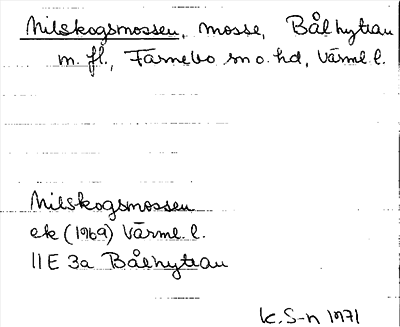 Nilskogsmossen, mosse, Bålhyttan
m. fl., Färnebo sn o. hd, Värml. l.
Nilskogsmossen
ek (1969) Värml. l.
11E 3a Bålhyttan
K. S-n 1971